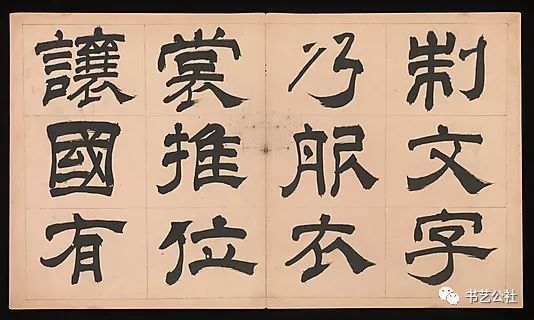 制文字
乃服衣
裳推位
讓國有
书艺公社